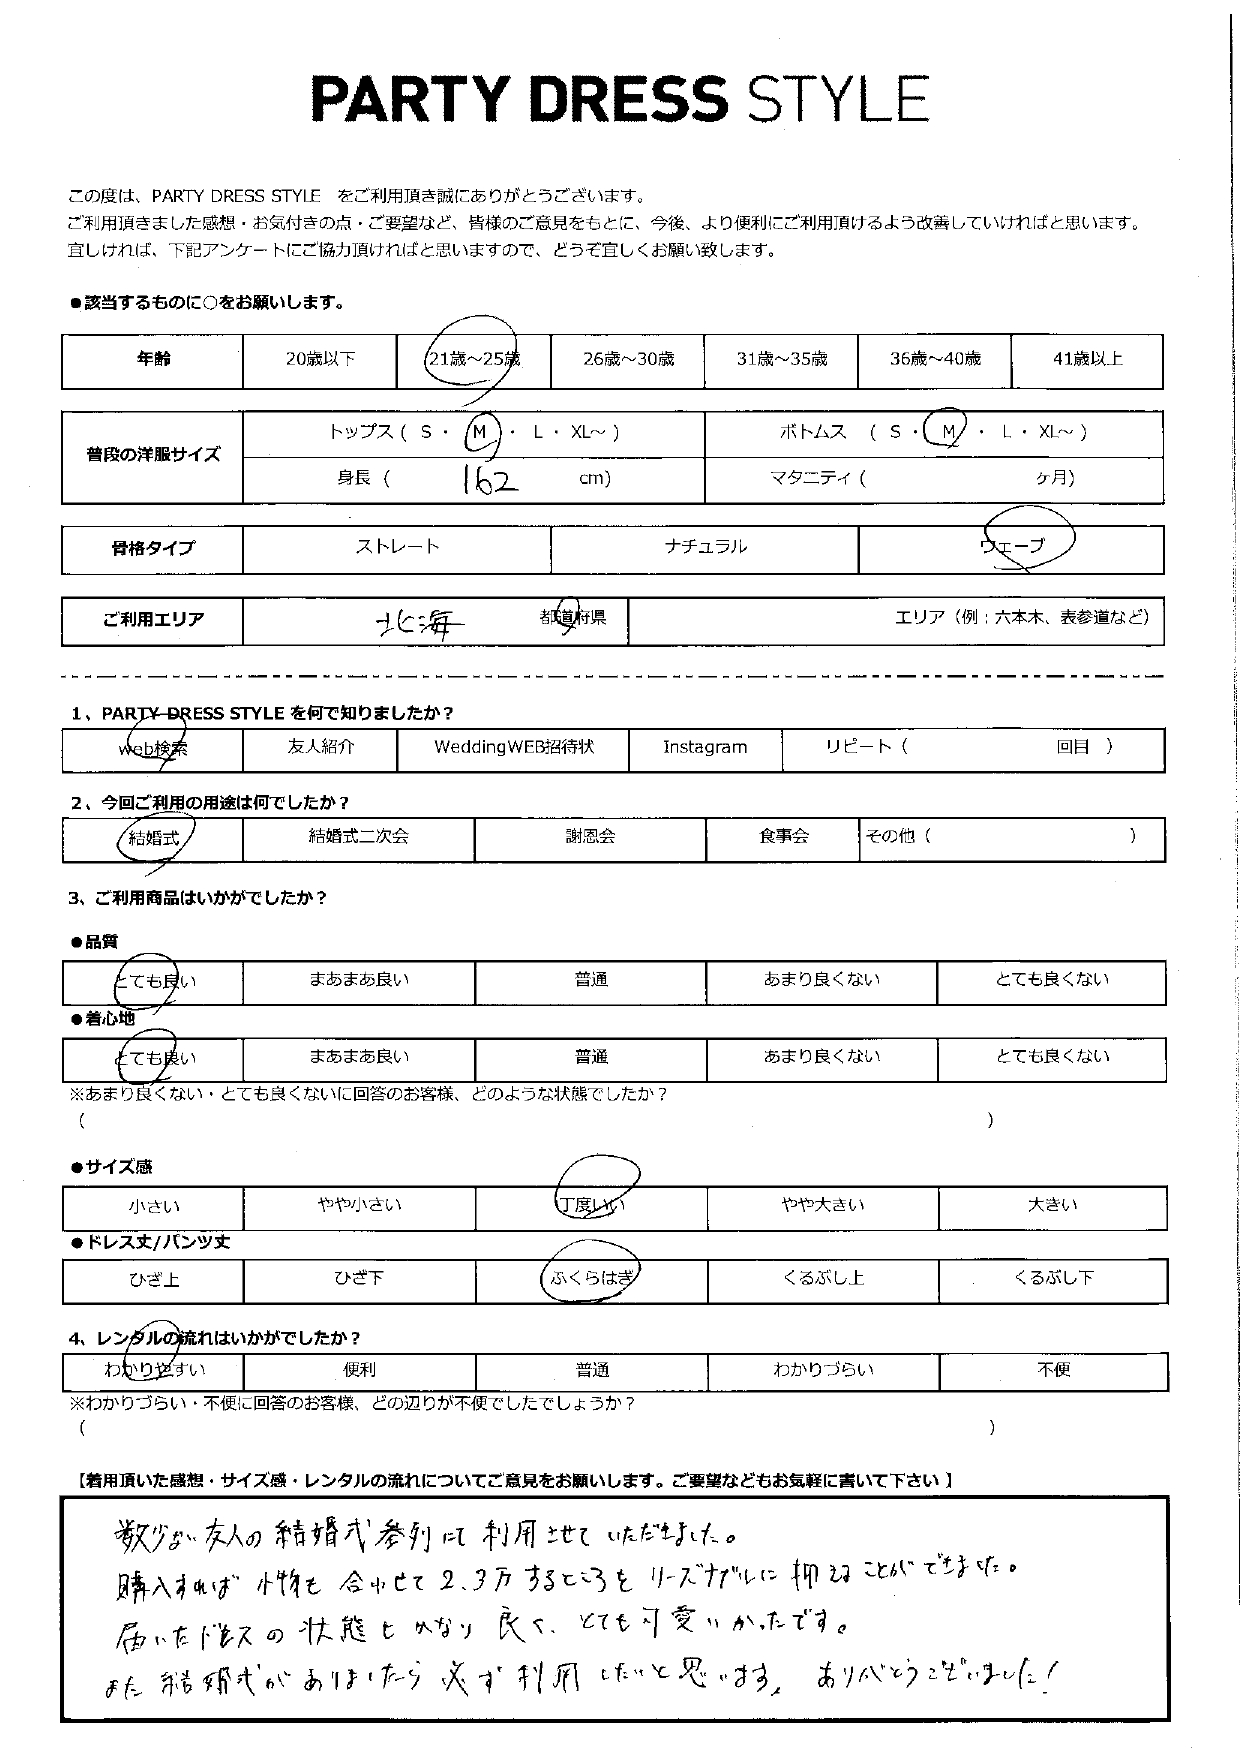 PARTY DRESS STYLE
この度は、PARTY DRESS STYLE をご利用頂き誠にありがとうございます。
ご利用頂きました感想・お気付きの点・ご要望など、皆様のご意見をもとに、今後、より便利にご利用頂けるよう改善していければと思います。
宜しければ、下記アンケートにご協力頂ければと思いますので、どうぞ宜しくお願い致します。
●該当するものに○をお願いします。
年齢 20歳以下 21歳～25歳 26歳～30歳 31歳～35歳 36歳～40歳 41歳以上
普段の洋服サイズ トップス ( S ・ M ・ L ・ XL～ ) ボトムス ( S ・ M ・ L ・ XL～ )
身長 ( 162 cm) マタニティ ( ヶ月)
骨格タイプ ストレート ナチュラル ウェーブ
ご利用エリア 北海 都道府県 エリア（例：六本木、表参道など）
1、PARTY DRESS STYLE を何で知りましたか？
web検索 友人紹介 WeddingWEB招待状 Instagram リピート ( 回目 )
2、今回ご利用の用途は何でしたか？
結婚式 結婚式二次会 謝恩会 食事会 その他 ( )
3、ご利用商品はいかがでしたか？
●品質
とても良い まあまあ良い 普通 あまり良くない とても良くない
●着心地
とても良い まあまあ良い 普通 あまり良くない とても良くない
※あまり良くない・とても良くないに回答のお客様、どのような状態でしたか？
( )
●サイズ感
小さい やや小さい 丁度いい やや大きい 大きい
●ドレス丈/パンツ丈
ひざ上 ひざ下 ふくらはぎ くるぶし上 くるぶし下
4、レンタルの流れはいかがでしたか？
わかりやすい 便利 普通 わかりづらい 不便
※わかりづらい・不便に回答のお客様、どの辺りが不便でしたでしょうか？
( )
【着用頂いた感想・サイズ感・レンタルの流れについてご意見をお願いします。ご要望などもお気軽に書いて下さい 】
数少ない友人の結婚式参列にて利用させていただきました。
購入すれば小物も合わせて2、3万するところをリーズナブルに抑えることができました。
届いたドレスの状態もかなり良く、とても可愛いかったです。
また結婚式がありましたら必ず利用したいと思います。ありがとうございました！